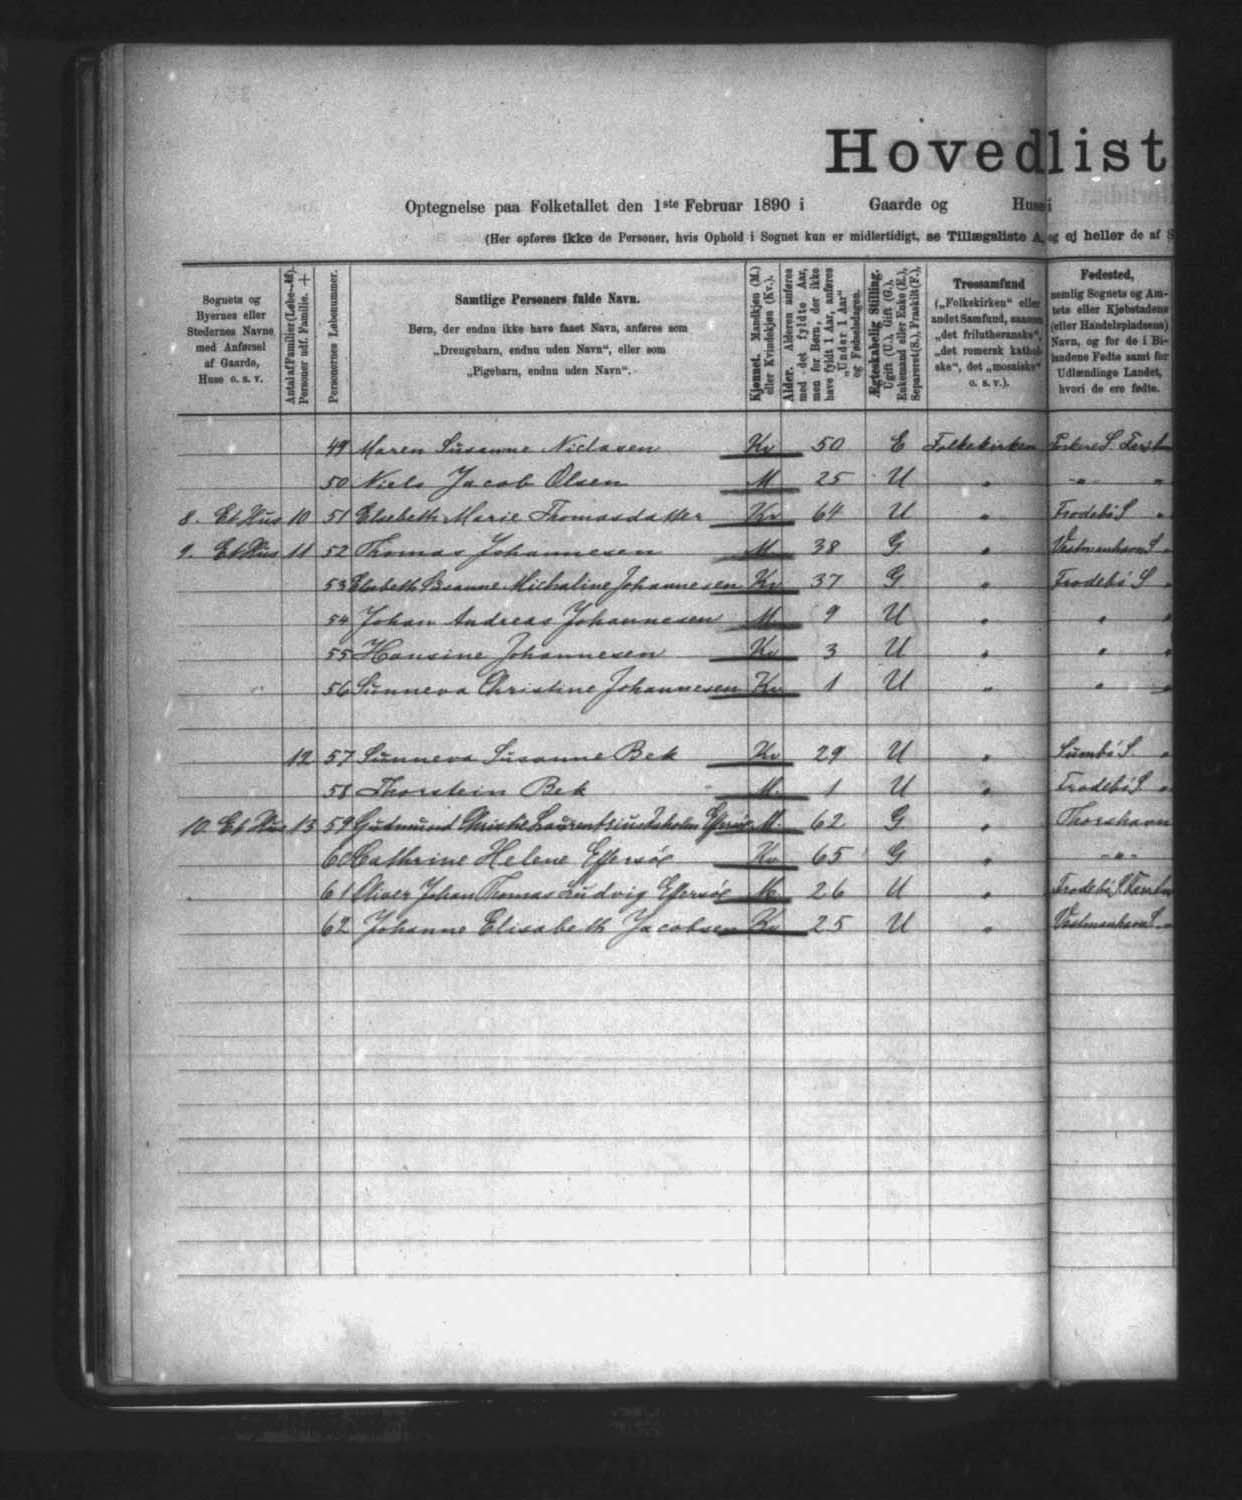 Hovedlist
Optegnelse paa Folketallet den 1ste Februar 1890 i Gaarde og Huse i
(Her opføres ikke de Personer, hvis Ophold i Sognet kun er midlertidigt, se Tillægsliste A, og ej heller de af S
Sognets og Byernes eller Stedernes Navne med Anførsel af Gaarde, Huse o. s. v.
Antal af Familier (Løbe-№). Personer udf. Familie. +
Personernes Løbenummer.
Samtlige Personers fulde Navn.
Børn, der endnu ikke have faaet Navn, anføres som
„Drengebarn, endnu uden Navn“, eller som
„Pigebarn, endnu uden Navn“.
Kjønnet. Mandkjøn (M.) eller Kvindekjøn (Kv.).
Alder. Alderen anføres med det fyldte Aar, men for Børn, der ikke have fyldt 1 Aar, anføres „Under 1 Aar“ og Fødselsdagen.
Ægteskabelig Stilling. Ugift (U.), Gift (G.), Enkemand eller Enke (E.), Separeret (S.), Fraskilt (F.).
Trossamfund („Folkekirken“ eller andet Samfund, saasom „det frilutheranske“, „det romersk katholske“, det „mosaiske“ o. s. v.).
Fødested, nemlig Sognets og Amtets eller Kjøbstadens (eller Handelspladsens) Navn, og for de i Bilandene Fødte samt for Udlændinge Landet, hvori de ere fødte.
49 Maren Susanne Niclasen Kv 50 E Folkekirken
50 Niels Jacob Olsen M 25 U " -"- "
8. Et Hus 10 51 Elsebeth Marie Thomasdatter Kv 64 U " Frodebö S "
9. Et Hus 11 52 Thomas Johannesen M 38 G " Vestmanhavn S "
53 Elsebeth Susanne Michaline Johannesen Kv 37 G " Frodebö S "
54 Johan Andreas Johannesen M 9 U " " "
55 Hansine Johannesen Kv 3 U " " "
56 Sunneva Christine Johannesen Kv 1 U " " "
12 57 Sunneva Susanne Bek Kv 29 U " Sumbö S. "
58 Thorstein Bek M. 1 U " Frodebö S "
10 Et Hus 13 59 Gudmund Laurentsius Effersöe M. 62 G " Thorshavn
60 Cathrine Helene Effersöe Kv 65 G " -"-
61 Oliver Johan Thomas Ludvig Effersöe M. 26 U " Frodebö S
62 Johanne Elisabeth Jacobsen Kv 25 U " Vestmanhavn S "